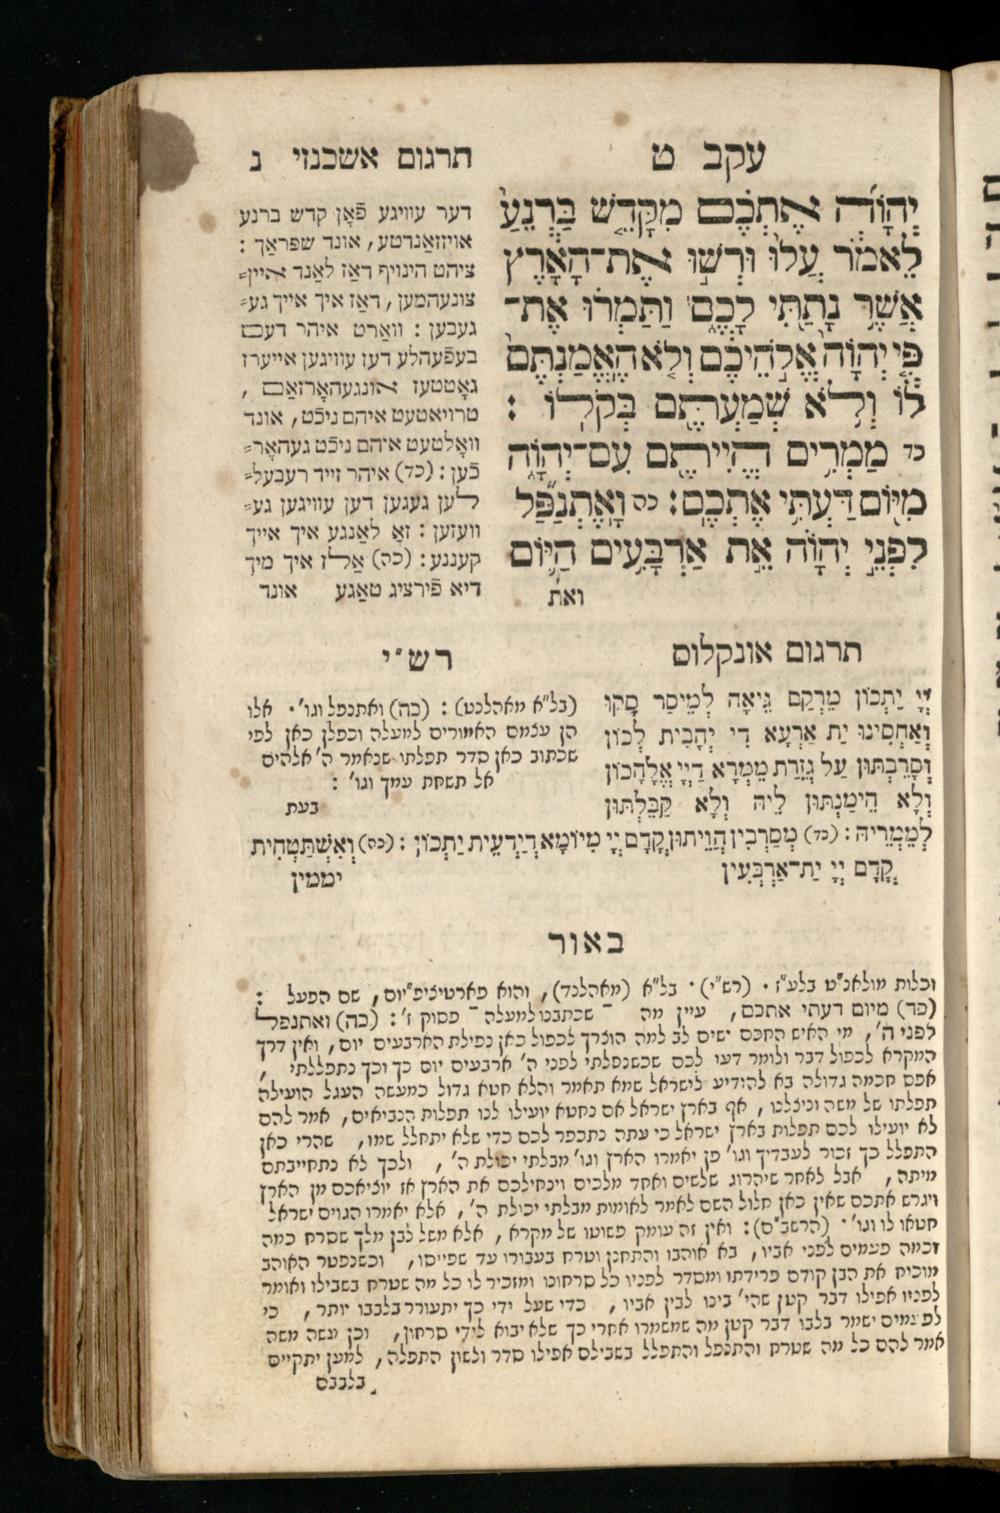 עקב ט
יְהוָֹה אֶתְכֶם מִקָּדֵשׁ בַּרְנֵעַ
לֵאמֹר עֲלוּ וּרְשׁוּ אֶת־הָאָרֶץ
אֲשֶׁר נָתַתִּי לָכֶם וַתַּמְרוּ אֶת־
פִּי יְהוָֹה אֱלֹהֵיכֶם וְלֹא הֶאֱמַנְתֶּם
לוֹ וְלֹא שְׁמַעְתֶּם בְּקֹלוֹ :
כד מַמְרִים הֱיִיתֶם עִם־יְהוָֹה
מִיּוֹם דַּעְתִּי אֶתְכֶם: כה וָאֶתְנַפַּל
לִפְנֵי יְהוָֹה אֵת אַרְבָּעִים הַיּוֹם
ואת
תרגום אשכנזי נ
דער עוויגע פֿאָן קדש ברנע
אויזזאַנדטע, אונד שפראַך :
ציהט הינויף דאַז לאַנד איין⸗
צונעהמען, דאַז איך אייך גע⸗
געבען : וואַרט איהר דעם
בעפֿעהלע דעז עוויגען אייערז
גאָטטעז אונגעהאָרזאַם ,
טרויאטעט איהם ניכֿט, אונד
וואָלטעט איהם ניכֿט געהאָר⸗
כֿען : (כד) איהר זייד רעבעל⸗
לען געגען דען עוויגען גע⸗
וועזען : זאָ לאַנגע איך אייך
קעננע : (כה) אַלז איך מיך
דיא פֿירציג טאַגע אונד
תרגום אונקלוס
יְיָ יַתְכוֹן מֵרְקַם גֵּיאָה לְמֵימַר סָקוּ
וְאַחְסִינוּ יַת אַרְעָא דִי יְהָבִית לְכוֹן
וְסָרֵבְתּוּן עַל גְּזֵרַת מֵמְרָא דַיְיָ אֱלָהָכוֹן
וְלָא הֵימַנְתּוּן לֵיהּ וְלָא קַבֵּלְתּוּן
לְמֵמְרֵיהּ : (כד) מְסָרְבִין הֲוֵיתוּן קֳדָם יְיָ מִיּוֹמָא דְיַדְעֵית יַתְכוֹן : (כה) וְאִשְׁתַּטָּחִית
קֳדָם יְיָ יַת־אַרְבְּעִין
יממין
רש״י
(בל״א מאהלכט) : (כה) ואתנפל וגו׳ . אלו
הן עצמם האמורים למעלה וכפלן כאן לפי
שכתוב כאן סדר תפלתו שנאמר ה׳ אלהים
אל תשחת עמך וגו׳ :
בעת
באור
וכלות מולאנ״ט בלע״ז . (רש״י) . בל״א (מאהלנד), והוא פארטיציפ״יום, שם הפעל :
(כד) מיום דעתי אתכם, עיין מה ־ שכתבנו למעלה ־ פסוק ז׳ : (כה) ואתנפל
לפני ה׳, מי האיש החכם ישים לב למה הוצרך לכפול כאן נפילת הארבעים יום, ואין דרך
המקרא לכפול דבר ולומר דעי לכם שכשנפלתי לפני ה׳ ארבעים יום כך וכך נתפללתי ,
אפס חכמה גדולה בא להודיע לישראל שמא תאמר והלא חטא גדול כמעשה העגל הועילה
תפלתו של משה וניצלנו , אף בארץ ישראל אם נחטא יועילו לנו תפלות הנביאים, אמר להם
לא יועילו לכם תפלות בארץ ישראל כי עתה נתכפר לכם כדי שלא יתחלל שמו, שהרי כאן
התפלל כך זכור לעבדיך וגו׳ פן יאמרו הארץ וגו׳ מבלתי יכולת ה׳ , ולכך לא נתחייבתם
מיתה , אבל לאחר שיהרוג שלשים ואחד מלכים וינחילכם את הארץ אז יוציאכם מן הארץ
ויגרש אתכם שאין כאן חלול השם לאמר לאומות מבלתי יכולת ה׳, אלא יאמרו הגוים ישראל
חטאו לו וגו׳ . (הרשב״ם) : ואין זה עומק פשוטו של מקרא , אלא משל לבן מלך שסרח כמה
וכמה פעמים לפני אביו, בא אוהבו והתחנן וטרח בעבורו עד שפייסו, וכשנפטר האוהב
מוכיח את הבן קודם פרידתו ומסדר לפניו כל סרחונו ומזכיר לו כל מה שטרח בשבילו ואומר
לפניו אפילו דבר קטן שהי׳ בינו לבין אביו , כדי שעל ידי כך יתעורר בלבבו יותר, כי
לפעמים ישמר בלבו דבר קטן מה שמשמרו אחרי כך שלא יבוא לידי סרחון, וכן עשה משה
אמר להם כל מה שטרח והתנפל והתפלל בשבילם אפילו סדר ולשון התפלה, למען יתקיים
בלבבם